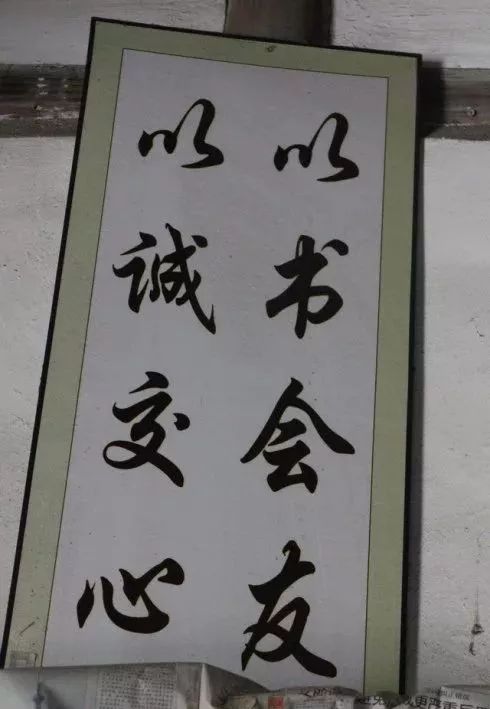 以书会友
以诚交心